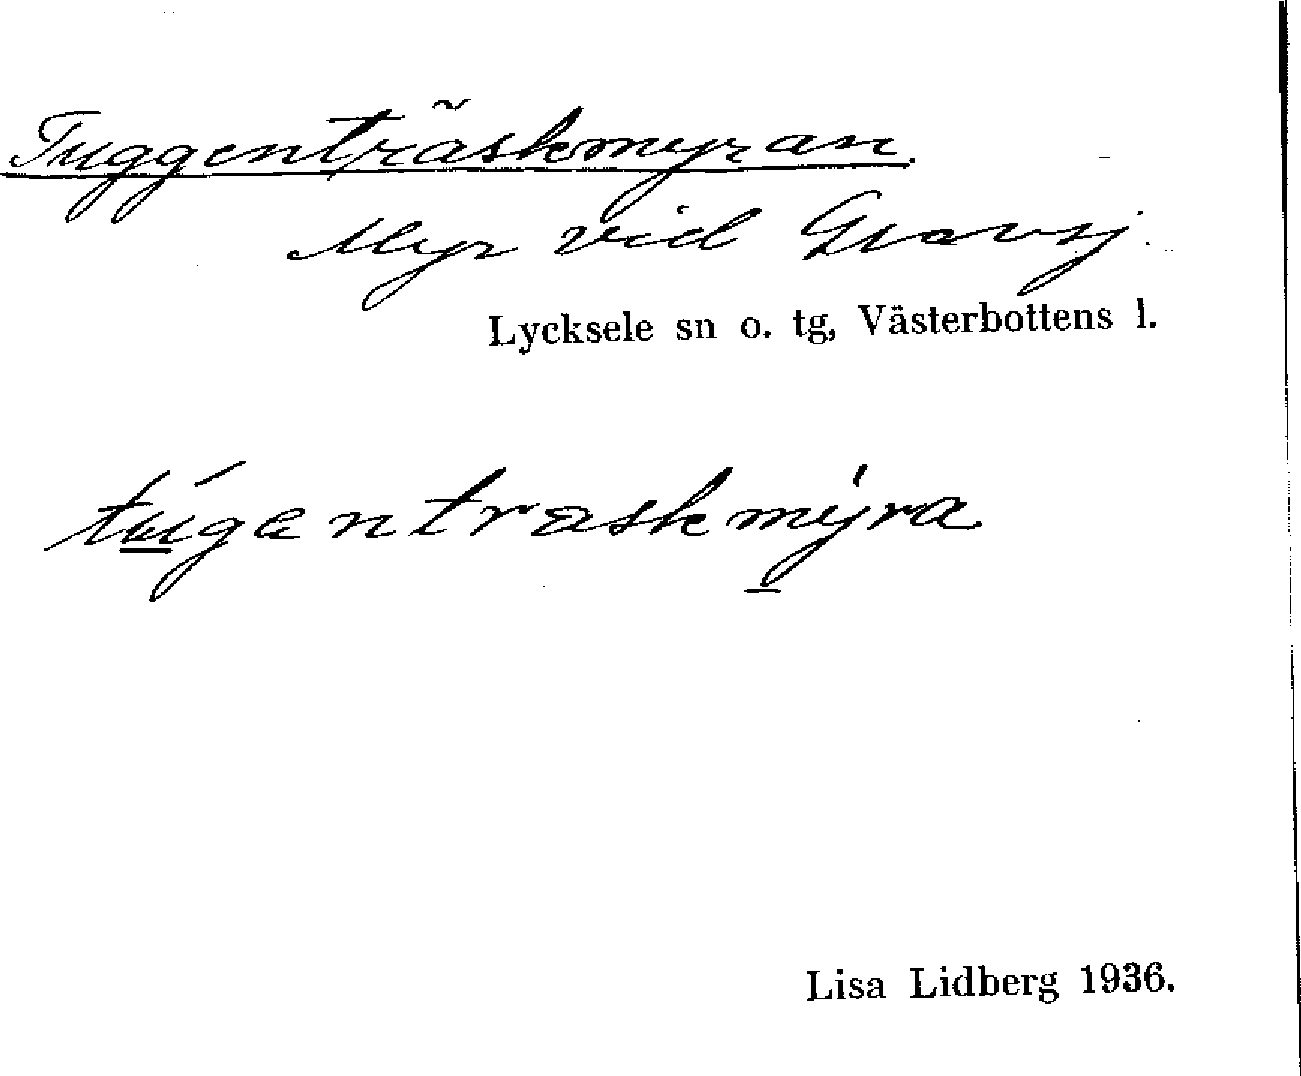 Tuggenträskmyran.
Myr vid Gravsj.
Lycksele sn o. tg, Västerbottens l.
Lisa Lidberg 1936.